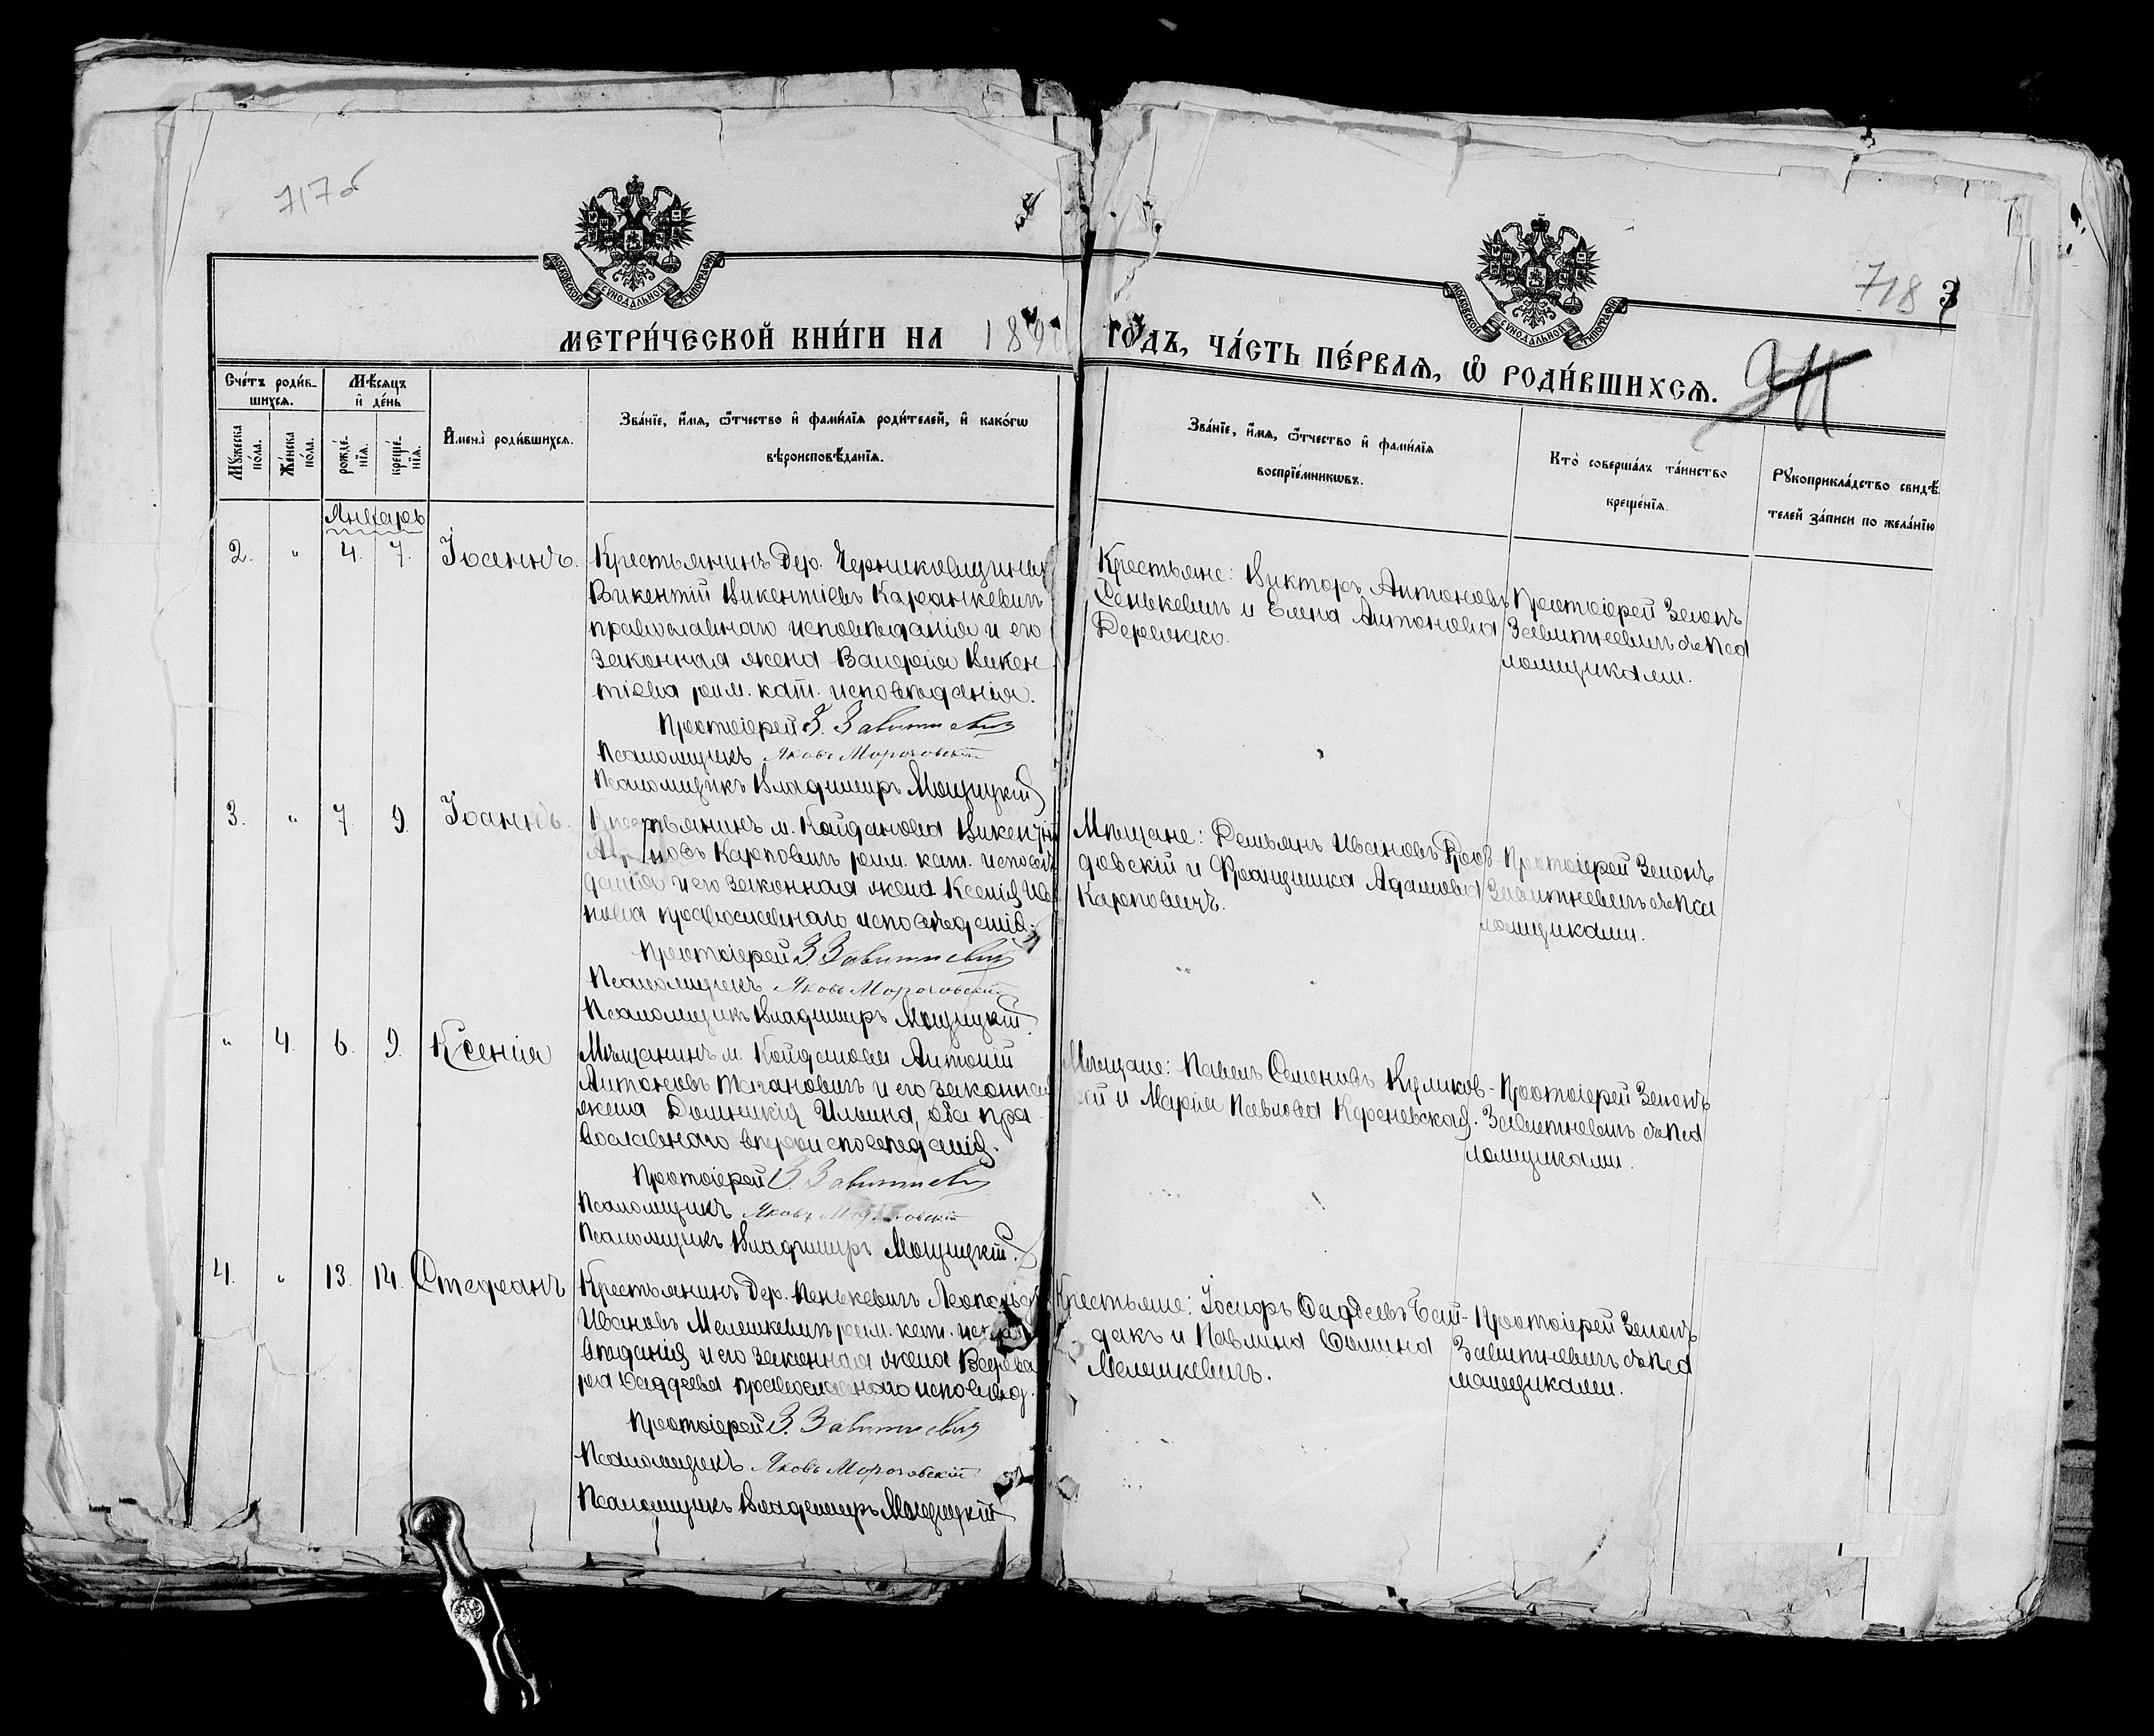 717об
718
3
МОСКОВСКОЙ СѴНОДАЛЬНОЙ ТИПОГРАФІИ
МОСКОВСКОЙ СѴНОДАЛЬНОЙ ТИПОГРАФІИ
МЕТРИ́ЧЕСКОЙ КНИ́ГИ НА 189
ГО́ДЪ, ЧА́СТЬ ПЕ́РВАѦ, Ѡ҆ РОДИ́ВШИХСѦ.
Сче́тъ роди́в-
шихсѧ.
Мꙋ́жеска
по́ла.
Же́нска
по́ла.
Мѣ́сѧцъ
и҆ де́нь
рожде́-
нїѧ.
креще́-
нїѧ.
И҆мена̀ роди́вшихсѧ.
Зва́нїе, и҆́мѧ, ѻ҆́тчество и҆ фами́лїѧ роди́телей, и҆ како́гѡ
вѣроисповѣ́данїѧ.
Зва́нїе, и҆́мѧ, ѻ҆́тчество и҆ фами́лїѧ
воспрїе́мникѡвъ.
Кто̀ соверша́лъ та́инство
креще́нїѧ.
Рꙋкоприкла́дство свидѣ́-
телей за́писи по жела́нїю
Январь
2. " 4. 7. Іоаннъ.
Крестьянинъ дер. Черниковщины
Викентій Викентіевъ Каранкевичъ
православнаго исповѣданія и его
законная жена Валерія Викен
тіева рим. кат. исповѣданія.
Протоіерей З. Завитневичъ
Псаломщикъ Яковъ Морозовскій
Псаломщикъ Владиміръ Мощицкій
Крестьяне: Викторъ Антоновъ
Сенькевичъ и Елена Антонова
Деревяско.
Протоіерей Зенонъ
Завитневичъ съ Пса
ломщиками.
3. " 7. 9. Іоаннъ.
Крестьянинъ м. Койданова Викентій
новъ Карповичъ рим. кат. исповѣ
данія и его законная жена Ксенія Ива
нова православнаго исповѣданія.
Протоіерей З. Завитневичъ
Псаломщикъ Яковъ Морозовскій
Псаломщикъ Владиміръ Мощицкій.
Мѣщане: Демьянъ Ивановъ
довскій и Францишка Адамова
Карповичъ.
Протоіерей Зенонъ
Завитневичъ съ Пса
ломщиками.
" 4. 6. 9. Ксенія
Мѣщанинъ м. Койданова Антоній
Антоновъ Тагановичъ и его законная
жена Домникія Ильина, оба пра-
вославнаго вѣроисповѣданія.
Протоіерей З. Завитневичъ
Псаломщикъ Яковъ Морозовскій
Псаломщикъ Владиміръ Мощицкій.
Мѣщане: Павелъ Семеновъ Куликов-
скій и Марія Павлова Кореневская.
Протоіерей Зенонъ
Завитневичъ съ Пса
ломщиками.
4. " 13. 14. Стефанъ
Крестьянинъ дер. Пенькевичъ Леопольдъ
Ивановъ Мелешкевичъ рим. кат. испо
вѣданія и его законная жена Варва
ра Фаддеева православнаго исповѣд.
Протоіерей З. Завитневичъ
Псаломщикъ Яковъ Морозовскій
Псаломщикъ Владиміръ Мощицкій
Крестьяне: Іосифъ Фаддеевъ Бай-
дакъ и Павлина Фомина
Мелешкевичъ.
Протоіерей Зенонъ
Завитневичъ съ Пса
ломщиками.